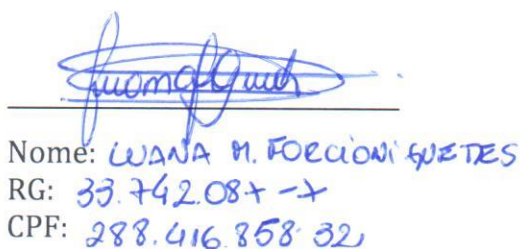 Nome: LUANA M. FORCIONI GUEDES
RG: 33.742.087-7
CPF: 288.416.858-32